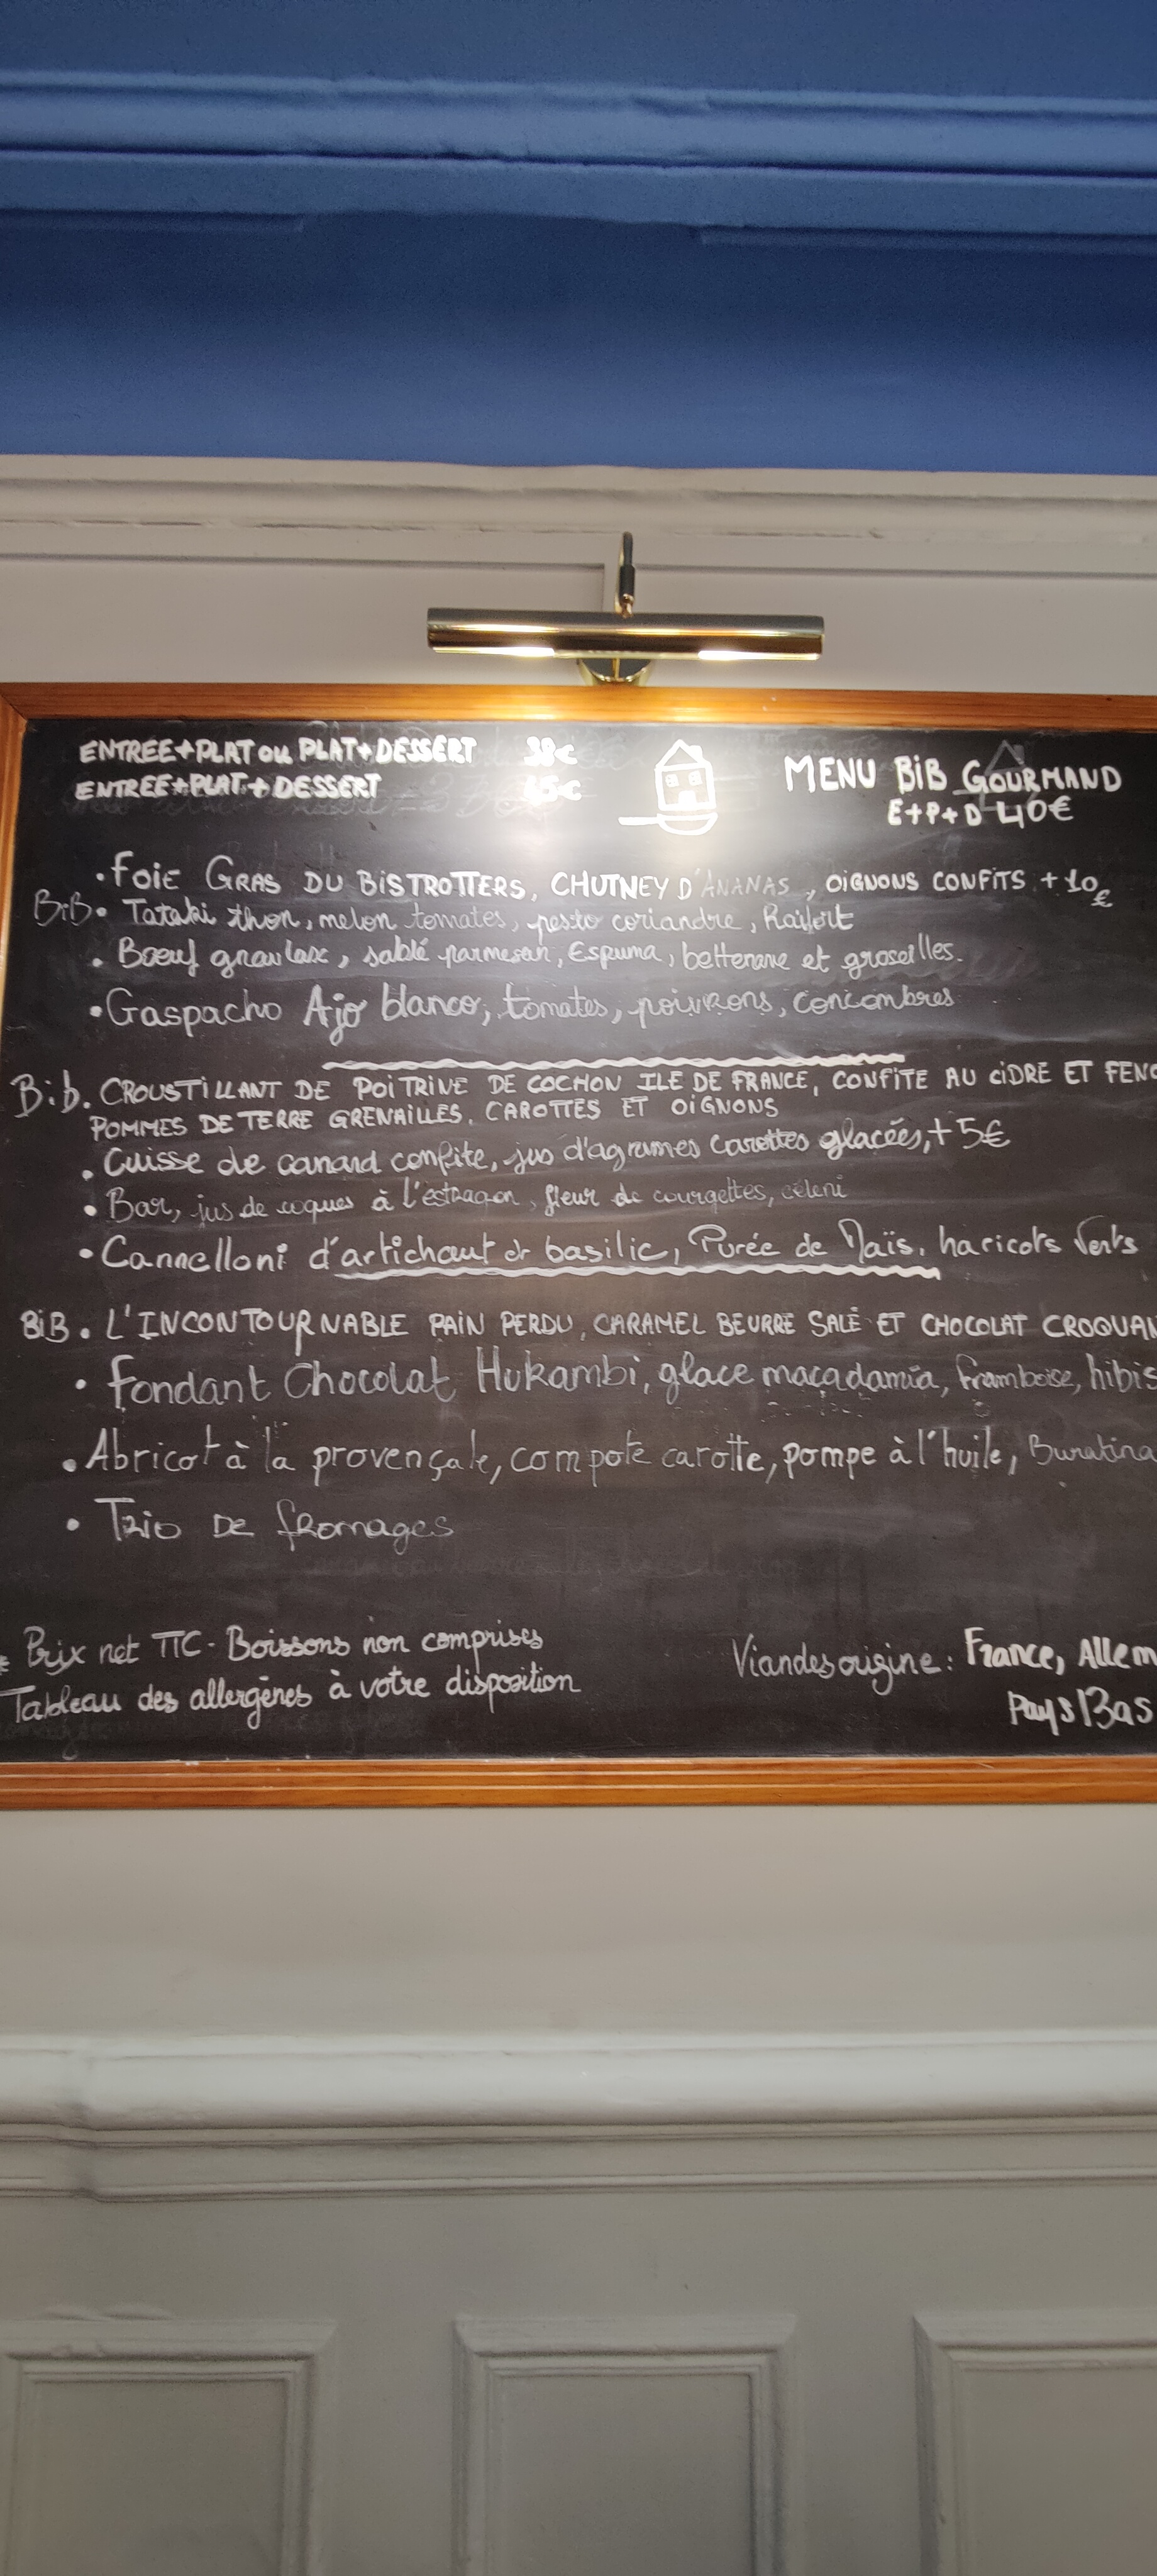 ENTREE+PLAT OU PLAT+DESSERT 38€
ENTREE+PLAT+DESSERT 45€
MENU BiB GOURMAND
E+P+D 40€
• FOIE GRAS DU BiSTROTTERS, CHUTNEY D'ANANAS, OiGNONS CONFiTS +10€
BiB • Tataki thon, melon tomates, pesto coriandre, Raifort
• Bœuf gravlax, sablé parmesan, Espuma, betterave et groseilles.
• Gaspacho Ajo blanco, tomates, poivrons, concombres
Bib. CROUSTiLLANT DE POiTRiNE DE COCHON ILE DE FRANCE, CONFiTE AU CiDRE ET FENO
POMMES DE TERRE GRENAILLES, CAROTTES ET OiGNONS
• Cuisse de canard confite, jus d'agrumes carottes glacées, +5€
• Bar, jus de coques à l'estragon, fleur de courgettes, céleri
• Cannelloni d'artichaut et basilic, Purée de Maïs, haricots Verts
BiB. L'INCONTOURNABLE PAiN PERDU, CARAMEL BEURRE SALÉ ET CHOCOLAT CROQUAN
• Fondant Chocolat Hukambi, glace macadamia, framboise, hibis
• Abricot à la provençale, compote carotte, pompe à l'huile,
• Trio De fromages
* Prix net TTC - Boissons non comprises
Tableau des allergènes à votre disposition
Viandes origine : France, Allem
Pays Bas